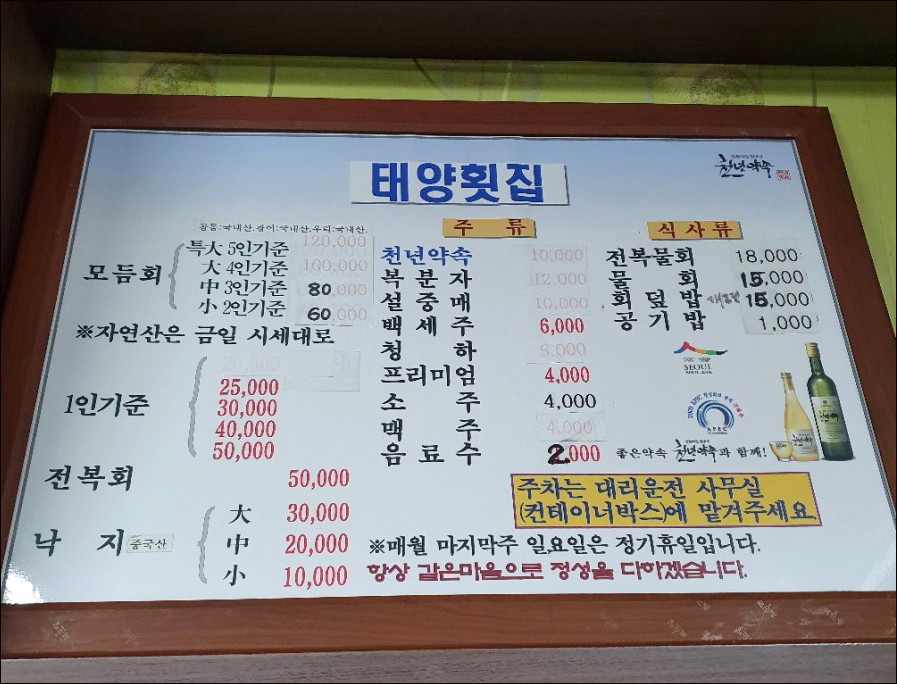 태양횟집
천년약속
꼼둠:국내산.광어:국내산.우럭:국내산.
모듬회
특大 5인기준 120,000
大 4인기준 100,000
中 3인기준 80,000
小 2인기준 60,000
※자연산은 금일 시세대로
1인기준
20,000
25,000
30,000
40,000
50,000
전복회 50,000
낙 지 중국산
大 30,000
中 20,000
小 10,000
주 류
천년약속 10,000
복분자 12,000
설중매 10,000
백세주 6,000
청 하 5,000
프리미엄 4,000
소 주 4,000
맥 주 4,000
음료수 2,000
식사류
전복물회 18,000
물 회 15,000
회덮밥 15,000
공기밥 1,000
SEOUL
APEC
좋은약속 천년약속과 함께!
주차는 대리운전 사무실
(컨테이너박스)에 맡겨주세요
※매월 마지막주 일요일은 정기휴일입니다.
항상 같은마음으로 정성을 다하겠습니다.